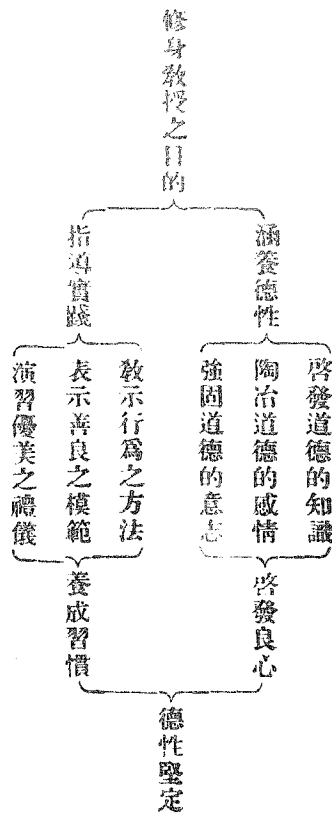 修身教授之目的
涵養德性
啓發道德的知識
陶冶道德的感情
強固道德的意志
啓發良心
指導實踐
敎示行爲之方法
表示善良之模範
演習優美之禮儀
養成習慣
德性堅定